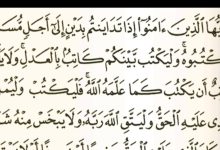 يها ٱلَّذِينَ ءَامَنُوٓا۟ إِذَا تَدَايَنتُم بِدَيْنٍ إِلَىٰٓ أَجَلٍ مُّسَ
كْتُبُوهُ ۚ وَلْيَكْتُب بَّيْنَكُمْ كَاتِبٌۢ بِٱلْعَدْلِ ۚ وَلَا يَ
بٌ أَن يَكْتُبَ كَمَا عَلَّمَهُ ٱللَّهُ ۚ فَلْيَكْتُبْ وَلْيُمْ
ى عَلَيْهِ ٱلْحَقُّ وَلْيَتَّقِ ٱللَّهَ رَبَّهُۥ وَلَا يَبْخَسْ مِنْهُ شَ